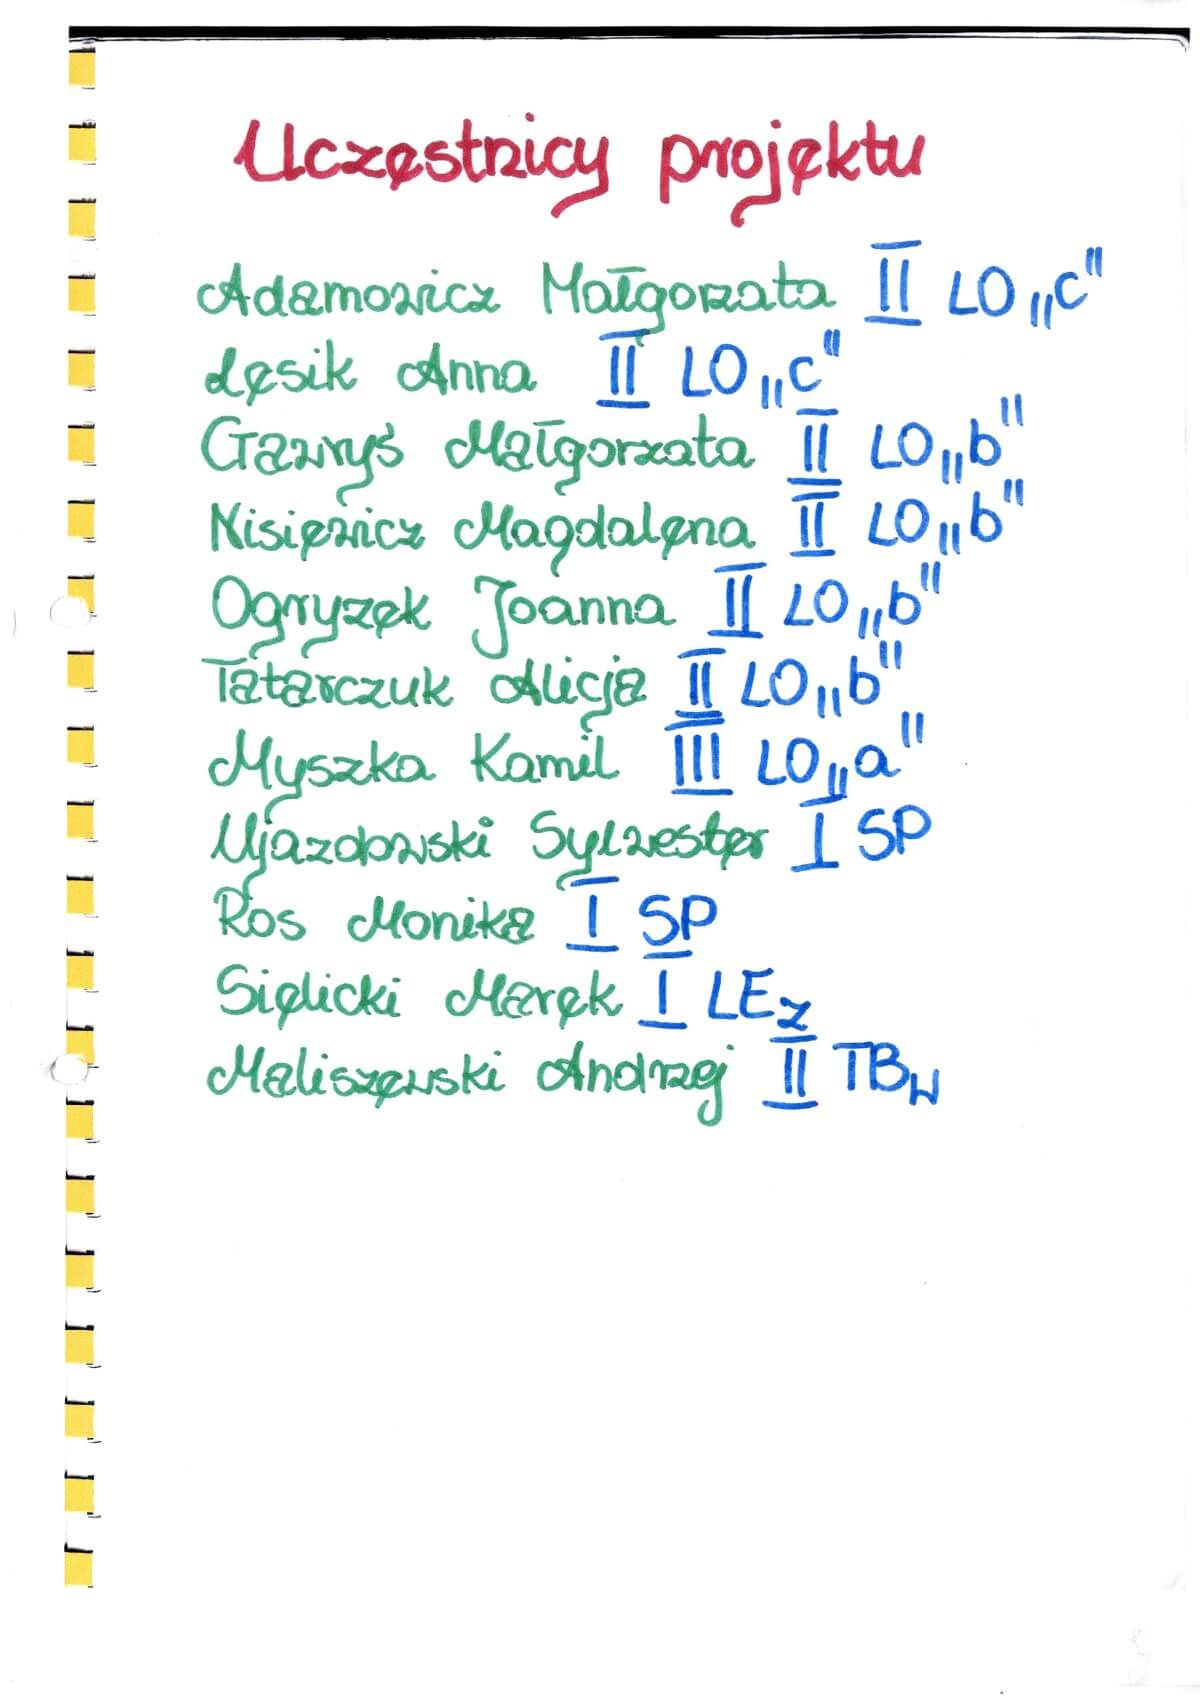 Uczestnicy projektu
Adamowicz Małgorzata II LO „c"
Lesik Anna II LO „c"
Gawryś Małgorzata II LO „b"
Nisiewicz Magdalena II LO „b"
Ogryzek Joanna II LO „b"
Tatarczuk Alicja II LO „b"
Myszka Kamil III LO „a"
Ujazdowski Sylwester I SP
Ros Monika I SP
Sielicki Marek I LEz
Maliszewski Andrzej II TBW